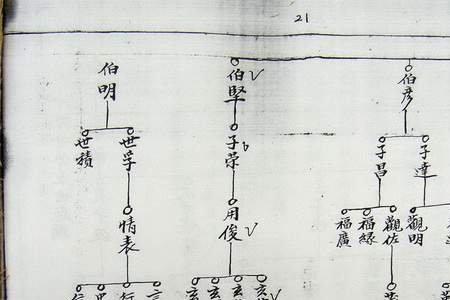 21
伯彥
伯堅
伯明
子達
子昌
子榮
世孚
世積
觀明
觀佐
福緑
福廣
用俊
情表